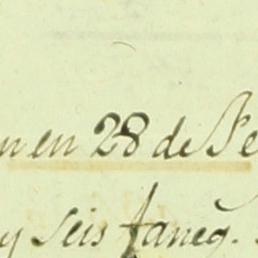 en 28 de Se
y seis faneg.